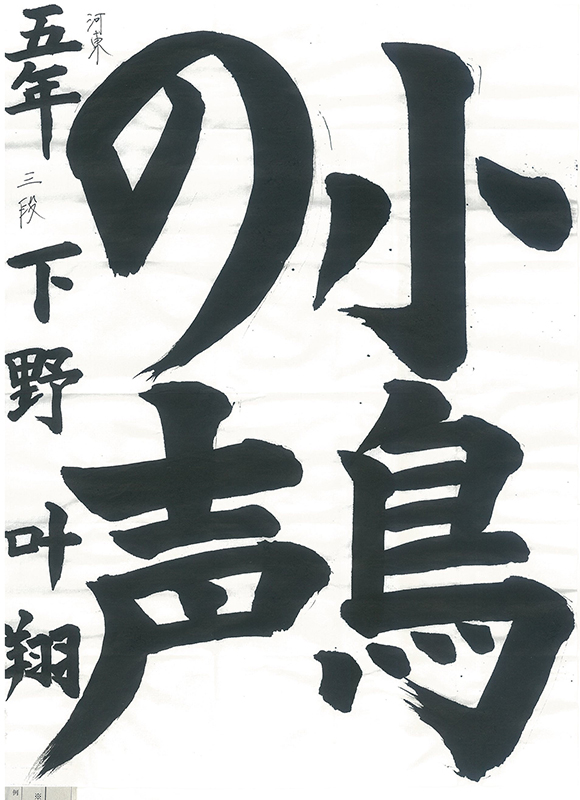 小鳥
の声
河東
五年 三段 下野叶翔
例 ※